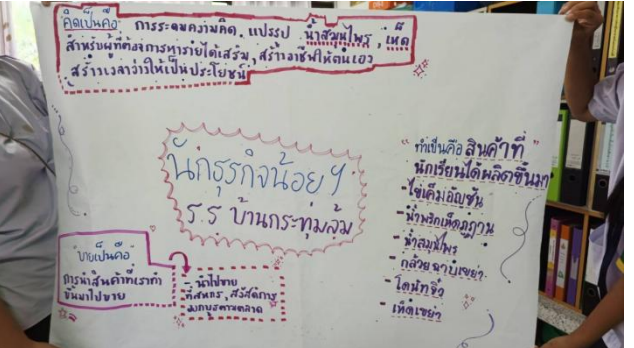 คิดเป็นคือ การระดมความคิด, แปรรูป น้ำสมุนไพร, เห็ด
สำหรับผู้ที่ต้องการหารายได้เสริม, สร้างอาชีพให้ตนเอง
สร้างเวลาว่างให้เป็นประโยชน์
นักธุรกิจน้อยฯ
ร.ร บ้านกระทุ่มล้ม
"ทำเป็นคือ สินค้าที่"
นักเรียนได้ผลิตขึ้นมา
- ไข่เค็มอัญชัน
- น้ำพริกเห็ดภูฏาน
- น้ำสมุนไพร
- กล้วยฉาบเขย่า
- โดนัทจิ๋ว
- เห็ดเขย่า
"ขายเป็นคือ"
การนำสินค้าที่เราทำ
ขึ้นมาไปขาย
- นำไปขาย
ที่สหกร, สวัสดิการ